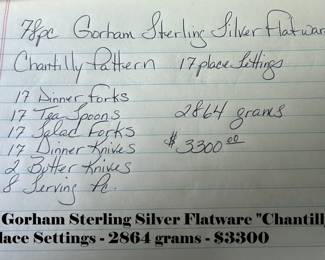 78pc Gorham Sterling Silver Flatwar
Chantilly Pattern 17 place Settings
17 Dinner Forks
17 Tea Spoons 2864 grams
17 Salad Forks
17 Dinner Knives $3300.00
2 Butter Knives
8 Serving Pc.
Gorham Sterling Silver Flatware "Chantill
lace Settings - 2864 grams - $3300